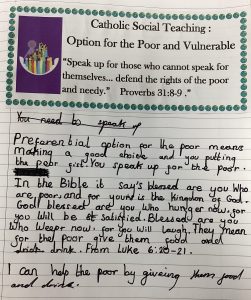 Catholic Social Teaching :
Option for the Poor and Vulnerable
"Speak up for those who cannot speak for
themselves... defend the rights of the poor
and needy." Proverbs 31:8-9 .
You need to speak up
Preferential option for the poor means
making a good choice and you putting
the poor first. You speak up for the poor.
In the Bible it say's blessed are you who
are poor, and for yours is the Kingdom of God.
God blessed are you who hunger now, for
you will be satisfied. Blessed are you
who weeper now, for you will laugh. They mean
for the poor give them food and
drink. From Luke 6:20-21.
I can help the poor by giveing them food
and drink.